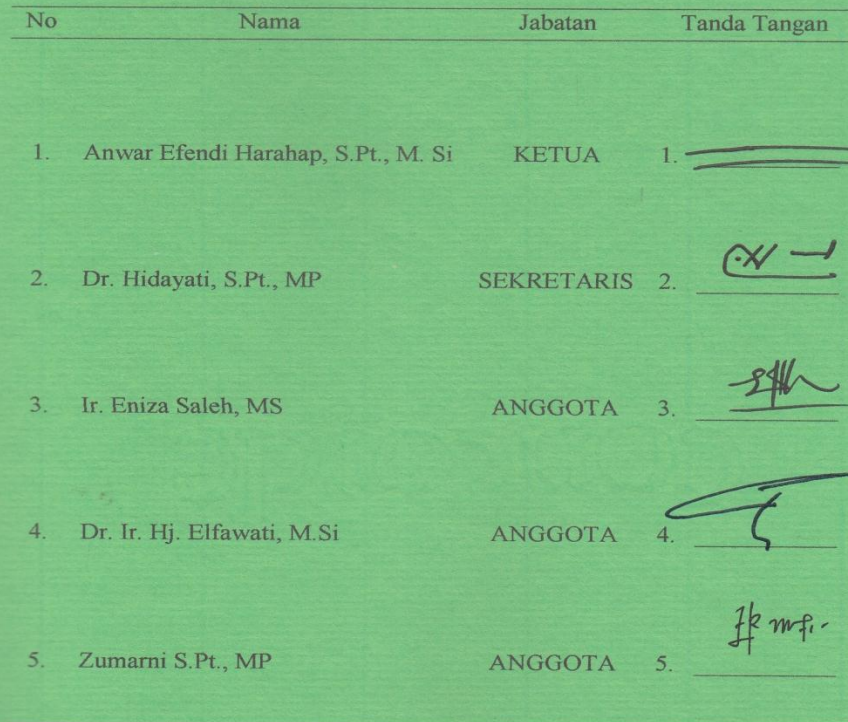 No Nama Jabatan Tanda Tangan
1. Anwar Efendi Harahap, S.Pt., M. Si KETUA 1.
2. Dr. Hidayati, S.Pt., MP SEKRETARIS 2.
3. Ir. Eniza Saleh, MS ANGGOTA 3.
4. Dr. Ir. Hj. Elfawati, M.Si ANGGOTA 4.
5. Zumarni S.Pt., MP ANGGOTA 5.